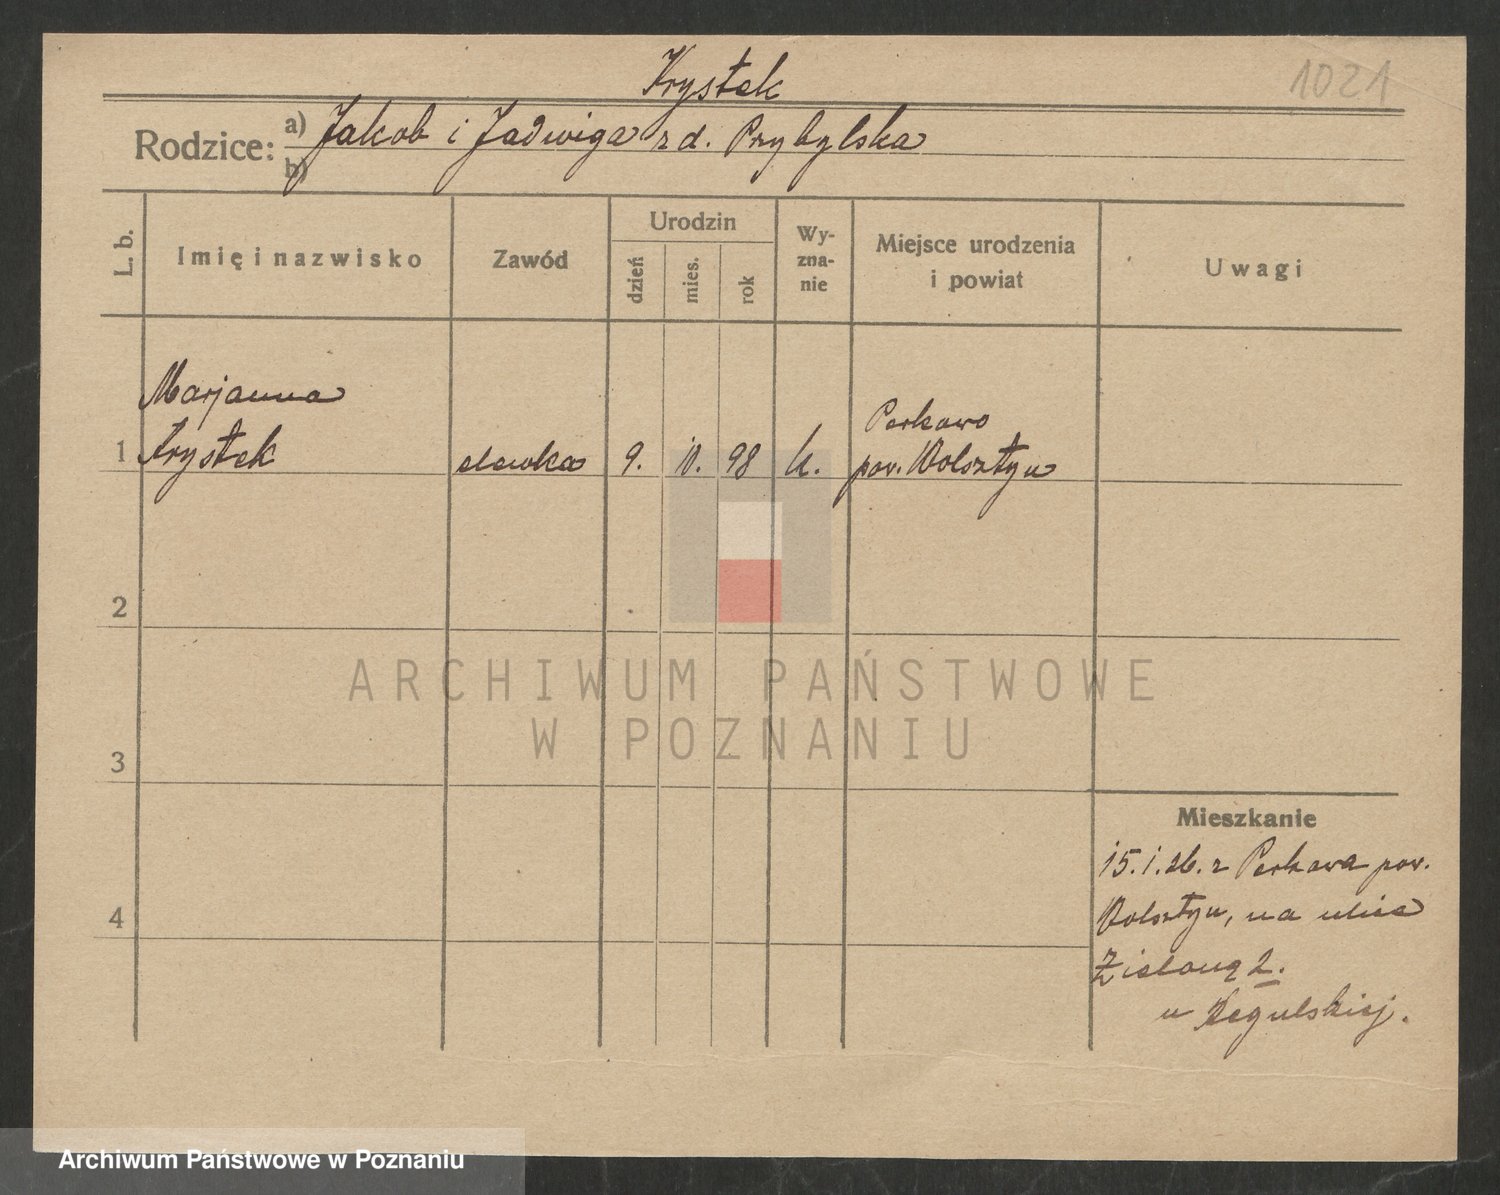 Krystek
1021
Rodzice: a) Jakob i Jadwiga zd. Przybylska
b)
L. b.
Imię i nazwisko
Zawód
Urodzin
dzień
mies.
rok
Wy-
zna-
nie
Miejsce urodzenia
i powiat
Uwagi
Marjanna
1 Krystek
9. 10. 98 k.
Perkowo
pow. Wolsztyn
2
3
4
Mieszkanie
15.1.26. z Perkowa pow.
Wolsztyn, na ulice
Zieloną 2.
u Regulskiej.
ARCHIWUM PAŃSTWOWE
W POZNANIU
Archiwum Państwowe w Poznaniu